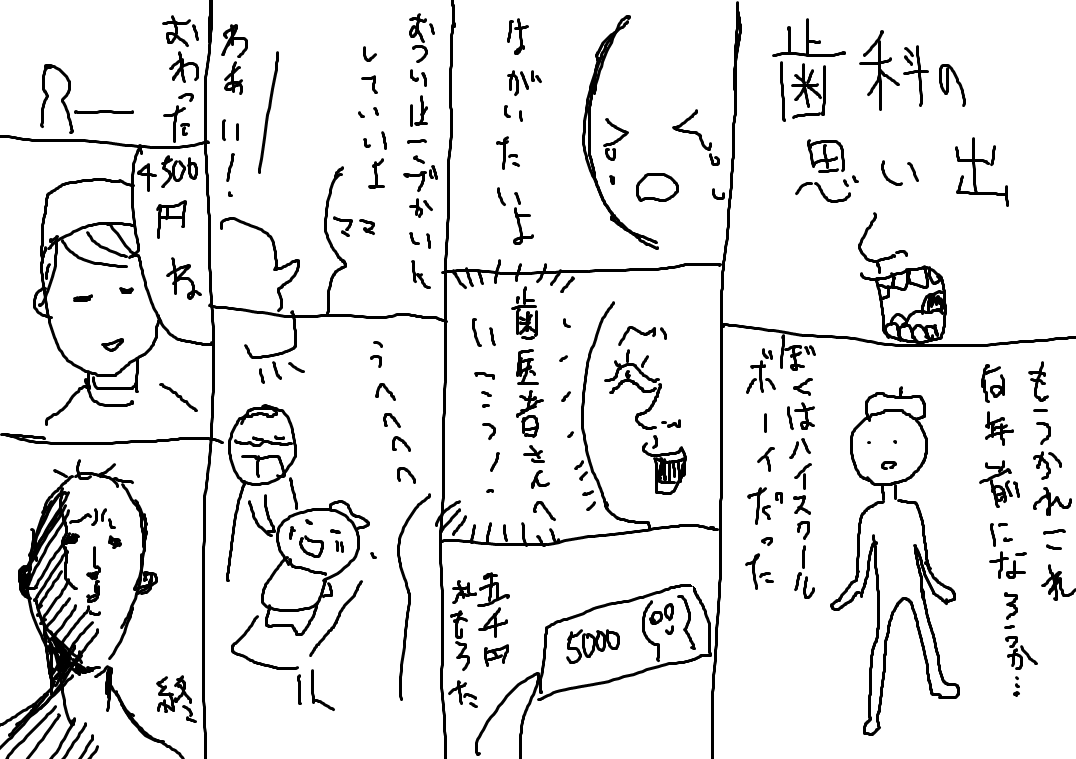 歯科の
思い出
もうかれこれ
何年前になろうか…
ぼくはハイスクール
ボーイだった
はがいたいよ
歯医者さんへ
いこう!
五千円
札もろた
5000
おつりはこづかいに
していいよ
ママ
わあい!
うへへへへ
おわった
4500
円
ね
終